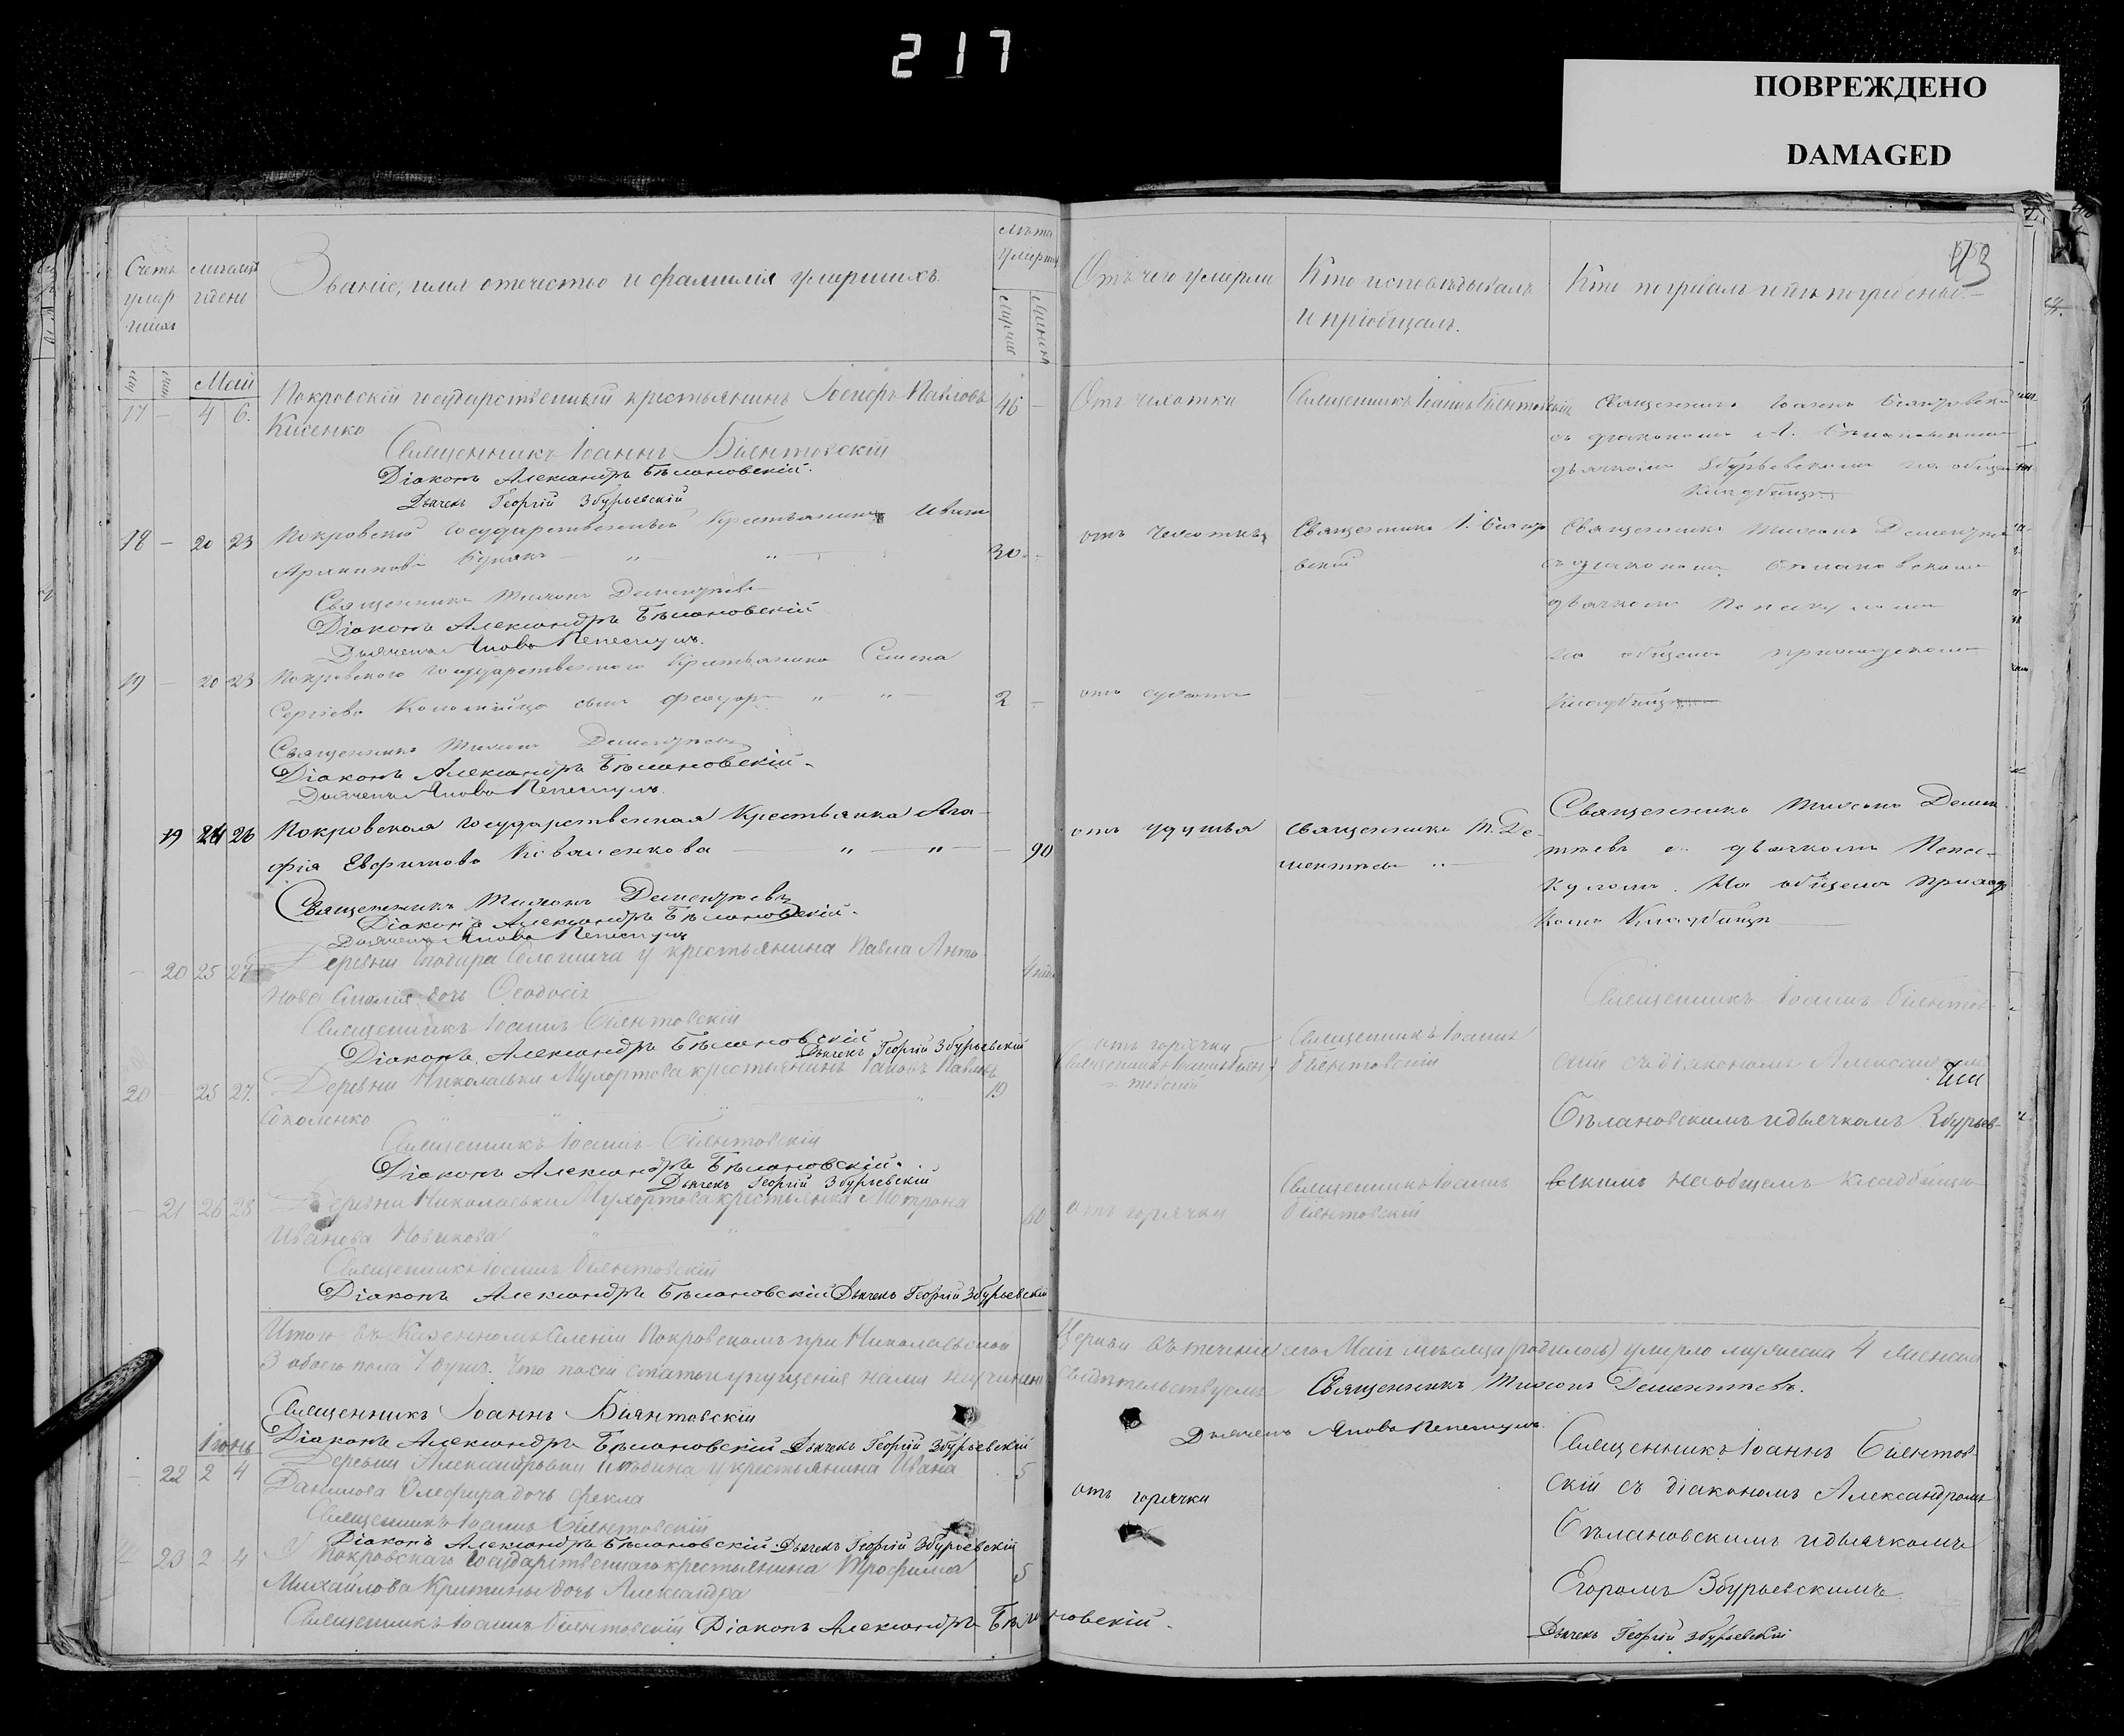 217
ПОВРЕЖДЕНО
DAMAGED
43
Счетъ умершихъ
месяцъ и день
Званіе, имя отечество и фамилія умершихъ.
лѣта умерш
Отъ чего умерли
Кто исповѣдывалъ и пріобщалъ.
Кто погребалъ и гдѣ погребены.
Маій
17 — 4 6.
Покровскій государственный крестьянинъ Іосифъ Павловъ
46 —
Отъ чихотки
Священникъ Іоаннъ Біянтовскій
Священникъ Іоаннъ Біянтовскій
Кисенко
съ діакономъ А. Бѣлановскимъ
Священникъ Іоаннъ Біянтовскій
Діаконъ Александръ Бѣлановскій.
дьячкомъ Збурьевскимъ на общем
Дьячекъ Георгій Збурьевскій
Кладбищѣ
18 — 20 23
Покровскій Государственный Крестьянинъ Иванъ
30 —
отъ Чихотки
Священникъ І. Біянтовскій
Священникъ Тихонъ Дементьев
съ діакономъ Бѣлановскимъ
Священникъ Тихонъ Дементьевъ
Діаконъ Александръ Бѣлановскій
дьячкомъ
Дьячекъ Яковъ
на общемъ приходскомъ
19 — 20 23
Покровского Государственного Крестьянина Семена
Сергіева Коломійца сынъ Феодоръ — „ — „ —
2 —
отъ
Кладбищѣ
Священникъ Тихонъ Дементьевъ
Діаконъ Александръ Бѣлановскій.
Дьячекъ Яковъ
— 19 24 26
Покровская Государственная Крестьянка Ага-
фія Евфимова Коваленкова — „ — „ —
— 90
отъ удушья
Священникъ Т. Де-
ментьевъ „
Священникъ Тихонъ Демен
тьевъ съ дьячкомъ
На общемъ приход
комъ Кладбищѣ
Священникъ Тихонъ Дементьевъ
Діаконъ Александръ Бѣлановскій.
Дьячекъ Яковъ
— 20 25 27
Деревни у крестьянина Павла Анто
нова дочь Ѳеодосія
Священникъ Іоаннъ Біянтовскій
Діаконъ Александръ Бѣлановскій
Дьячекъ Георгій Збурьевскій
Священникъ Іоаннъ Біянтов-
20 — 25 27.
Деревни Николаевки Мухортова крестьянинъ Павловъ
19
отъ горячки
Священникъ Іоаннъ Біян
товскій
Священникъ Іоаннъ
Біянтовскій
скій съ діакономъ Александромъ
Соколенко
Священникъ Іоаннъ Біянтовскій
Діаконъ Александръ Бѣлановскій.
Дьячекъ Георгій Збурьевскій
Бѣлановскимъ и дьячкомъ Збурьев-
— 21 26 28
Деревни Николаевки Мухортова крестьянка Матрона
60
отъ горячки
Священникъ Іоаннъ
Біянтовскій
скимъ на общемъ кладбищѣ
Иванова Новикова
Священникъ Іоаннъ Біянтовскій
Діаконъ Александръ Бѣлановскій Дьячекъ Георгій Збурьевскій
Итого въ Казенномъ селеніи Покровскомъ при Николаевской Церкви въ теченіи сего Маія мѣсяца (родилось) умерло мужеска 4 женска
3 обоего пола 7 душъ. Что по сей статьи упущенія нами неучинен свидѣтельствуемъ Священникъ Тихонъ Дементьевъ.
Священникъ Іоаннъ Біянтовскій
Дьячекъ Яковъ
Діаконъ Александръ Бѣлановскій Дьячекъ Георгій Збурьевскій
Іюнь
— 22 2 4
Деревни Александровки у крестьянина Ивана
5
отъ горячки
Данилова Олефира дочь Фекла
Священникъ Іоаннъ Біянтов-
скій съ діакономъ Александромъ
Бѣлановскимъ и дьячкомъ
Егоромъ Збурьевскимъ
Священникъ Іоаннъ Біянтовскій
Діаконъ Александръ Бѣлановскій. Дьячекъ Георгій Збурьевскій
23 2 4
Покровскаго государственнаго крестьянина Трофима
5
Михайлова дочь Александра
Священникъ Іоаннъ Біянтовскій Діаконъ Александръ Бѣлановскій.
Дьячекъ Георгій Збурьевскій